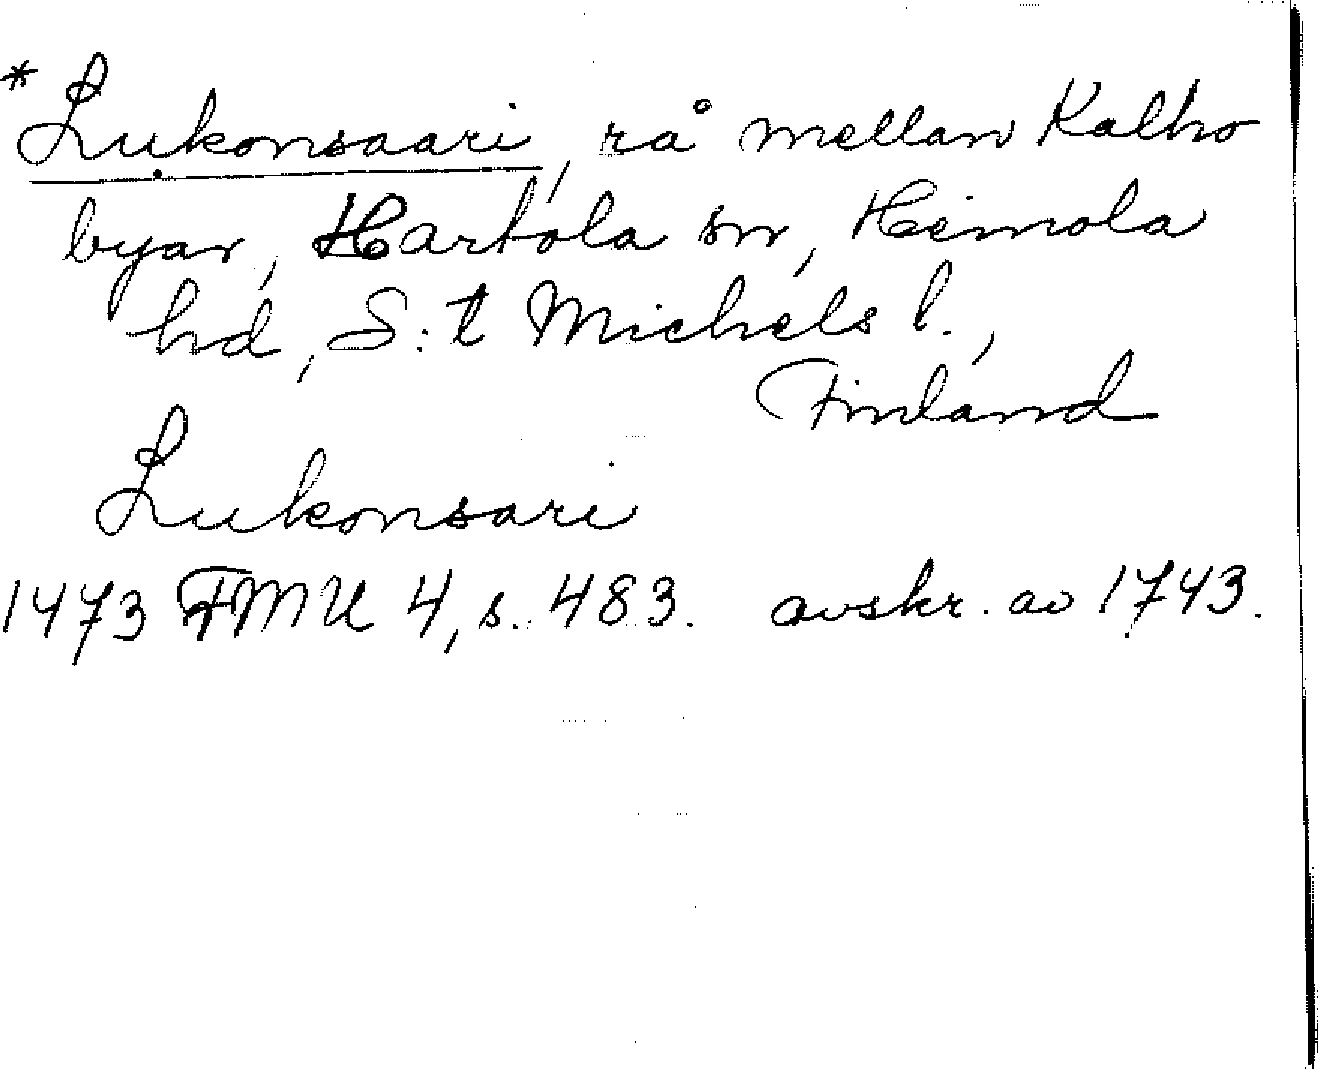 *Lukonsaari, rå mellan Kalho
byar, Hartola sn, Heinola
hd, S:t Michels l.,
Finland
Lukonsari
1473 FMU 4, s. 483. avskr. av 1743.